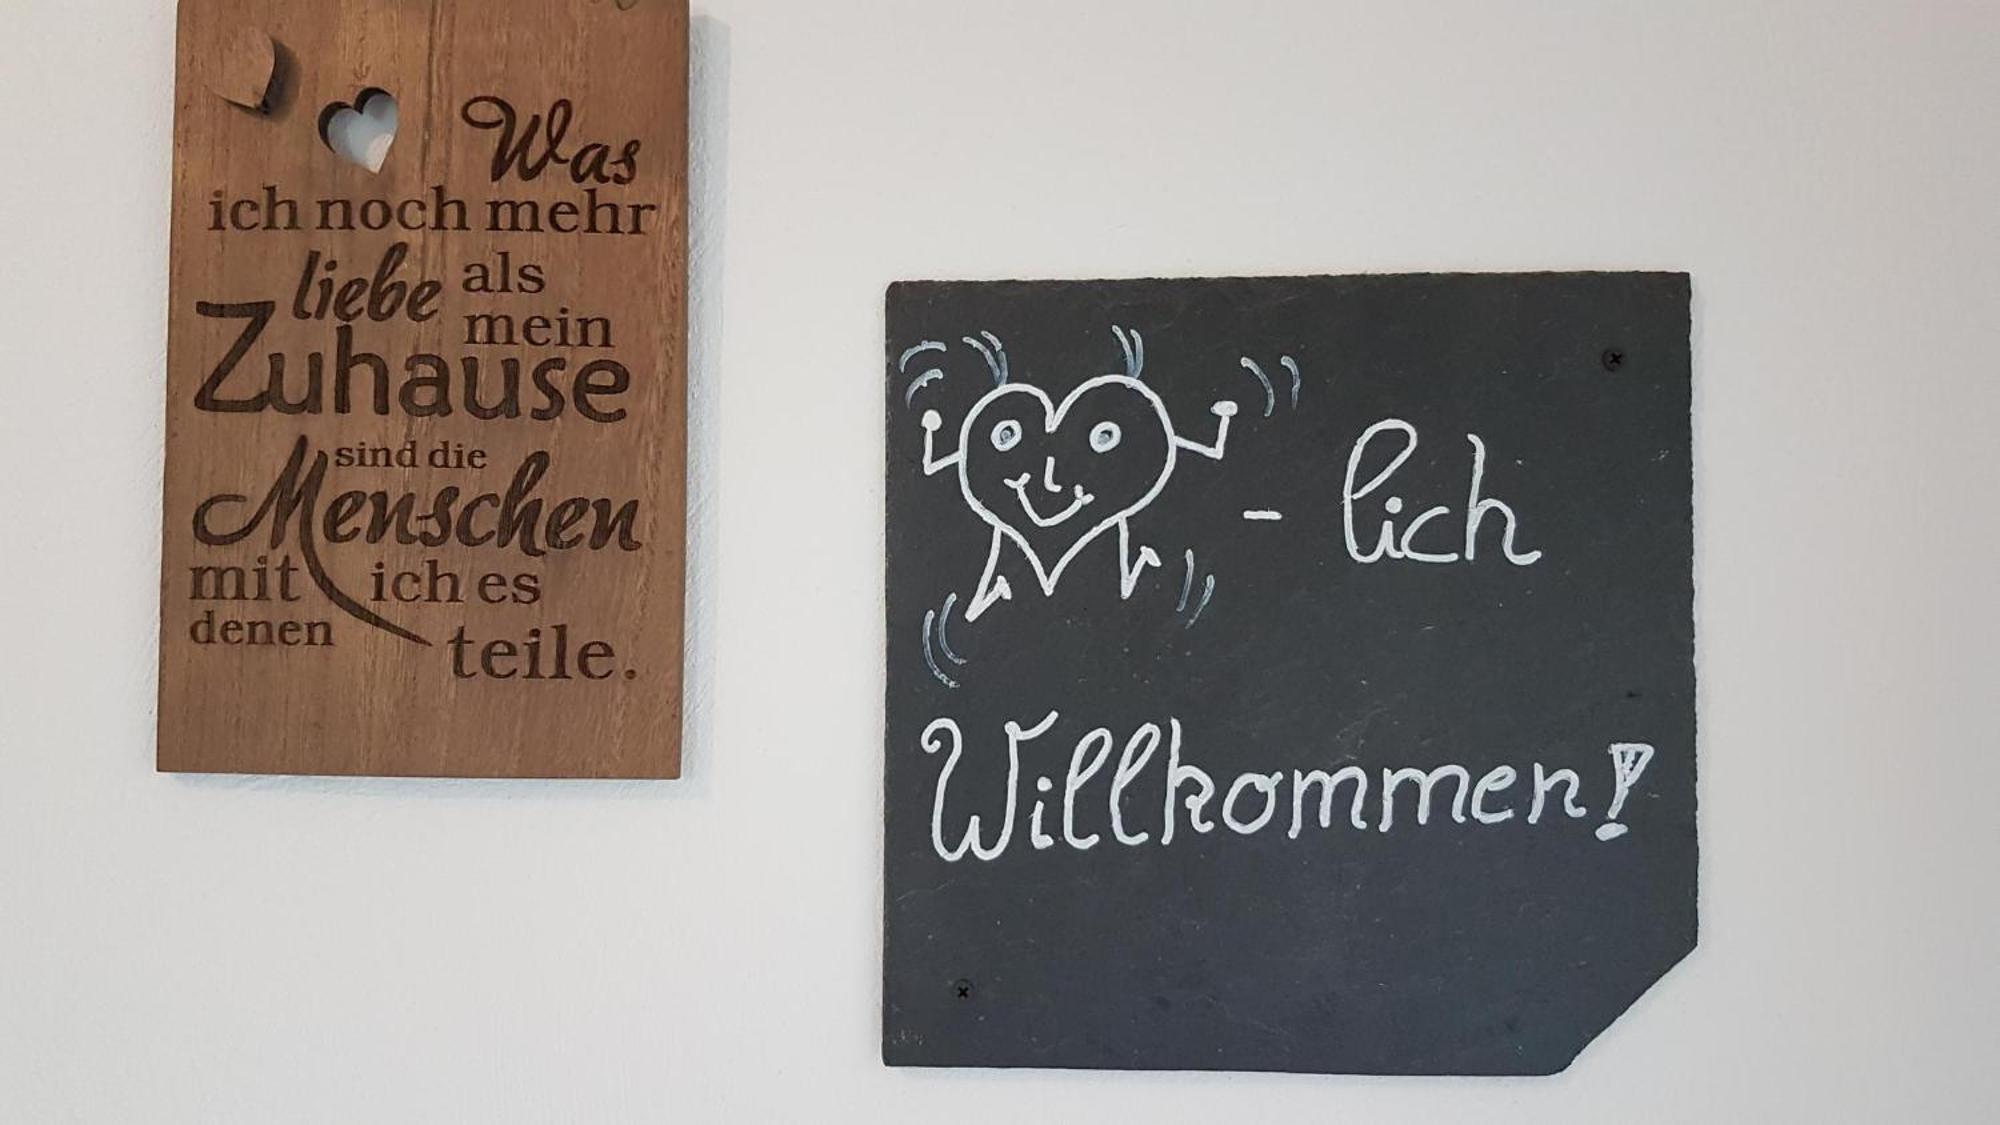 Was
ich noch mehr
liebe als
mein
Zuhause
sind die
Menschen
mit ich es
denen
teile.
- lich
Willkommen!